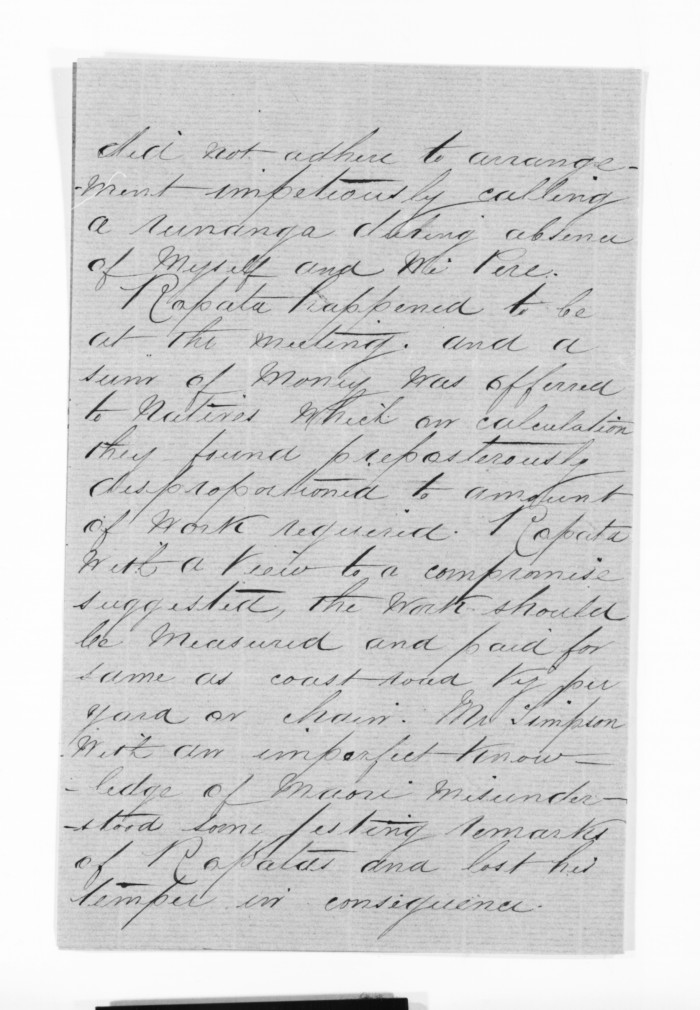 did not adhere to arrange-
-ment impetiously calling
a runanga during absence
of Myself and Wi Pere.
Ropata happened to be
at the meeting. and a
sum of Money was offerred
to Natives which on calculation
they found preposterously
desproportioned to amount
of work required. Ropata
with a view to a compromise
suggested, the work should
be Measured and paid for
same as coast road by per
yard or chain. Mr Simpson
With an imperfect Know-
-ledge of Maori Misunder-
-stood some jesting remarks
of Ropatas and lost his
temper in consequence.